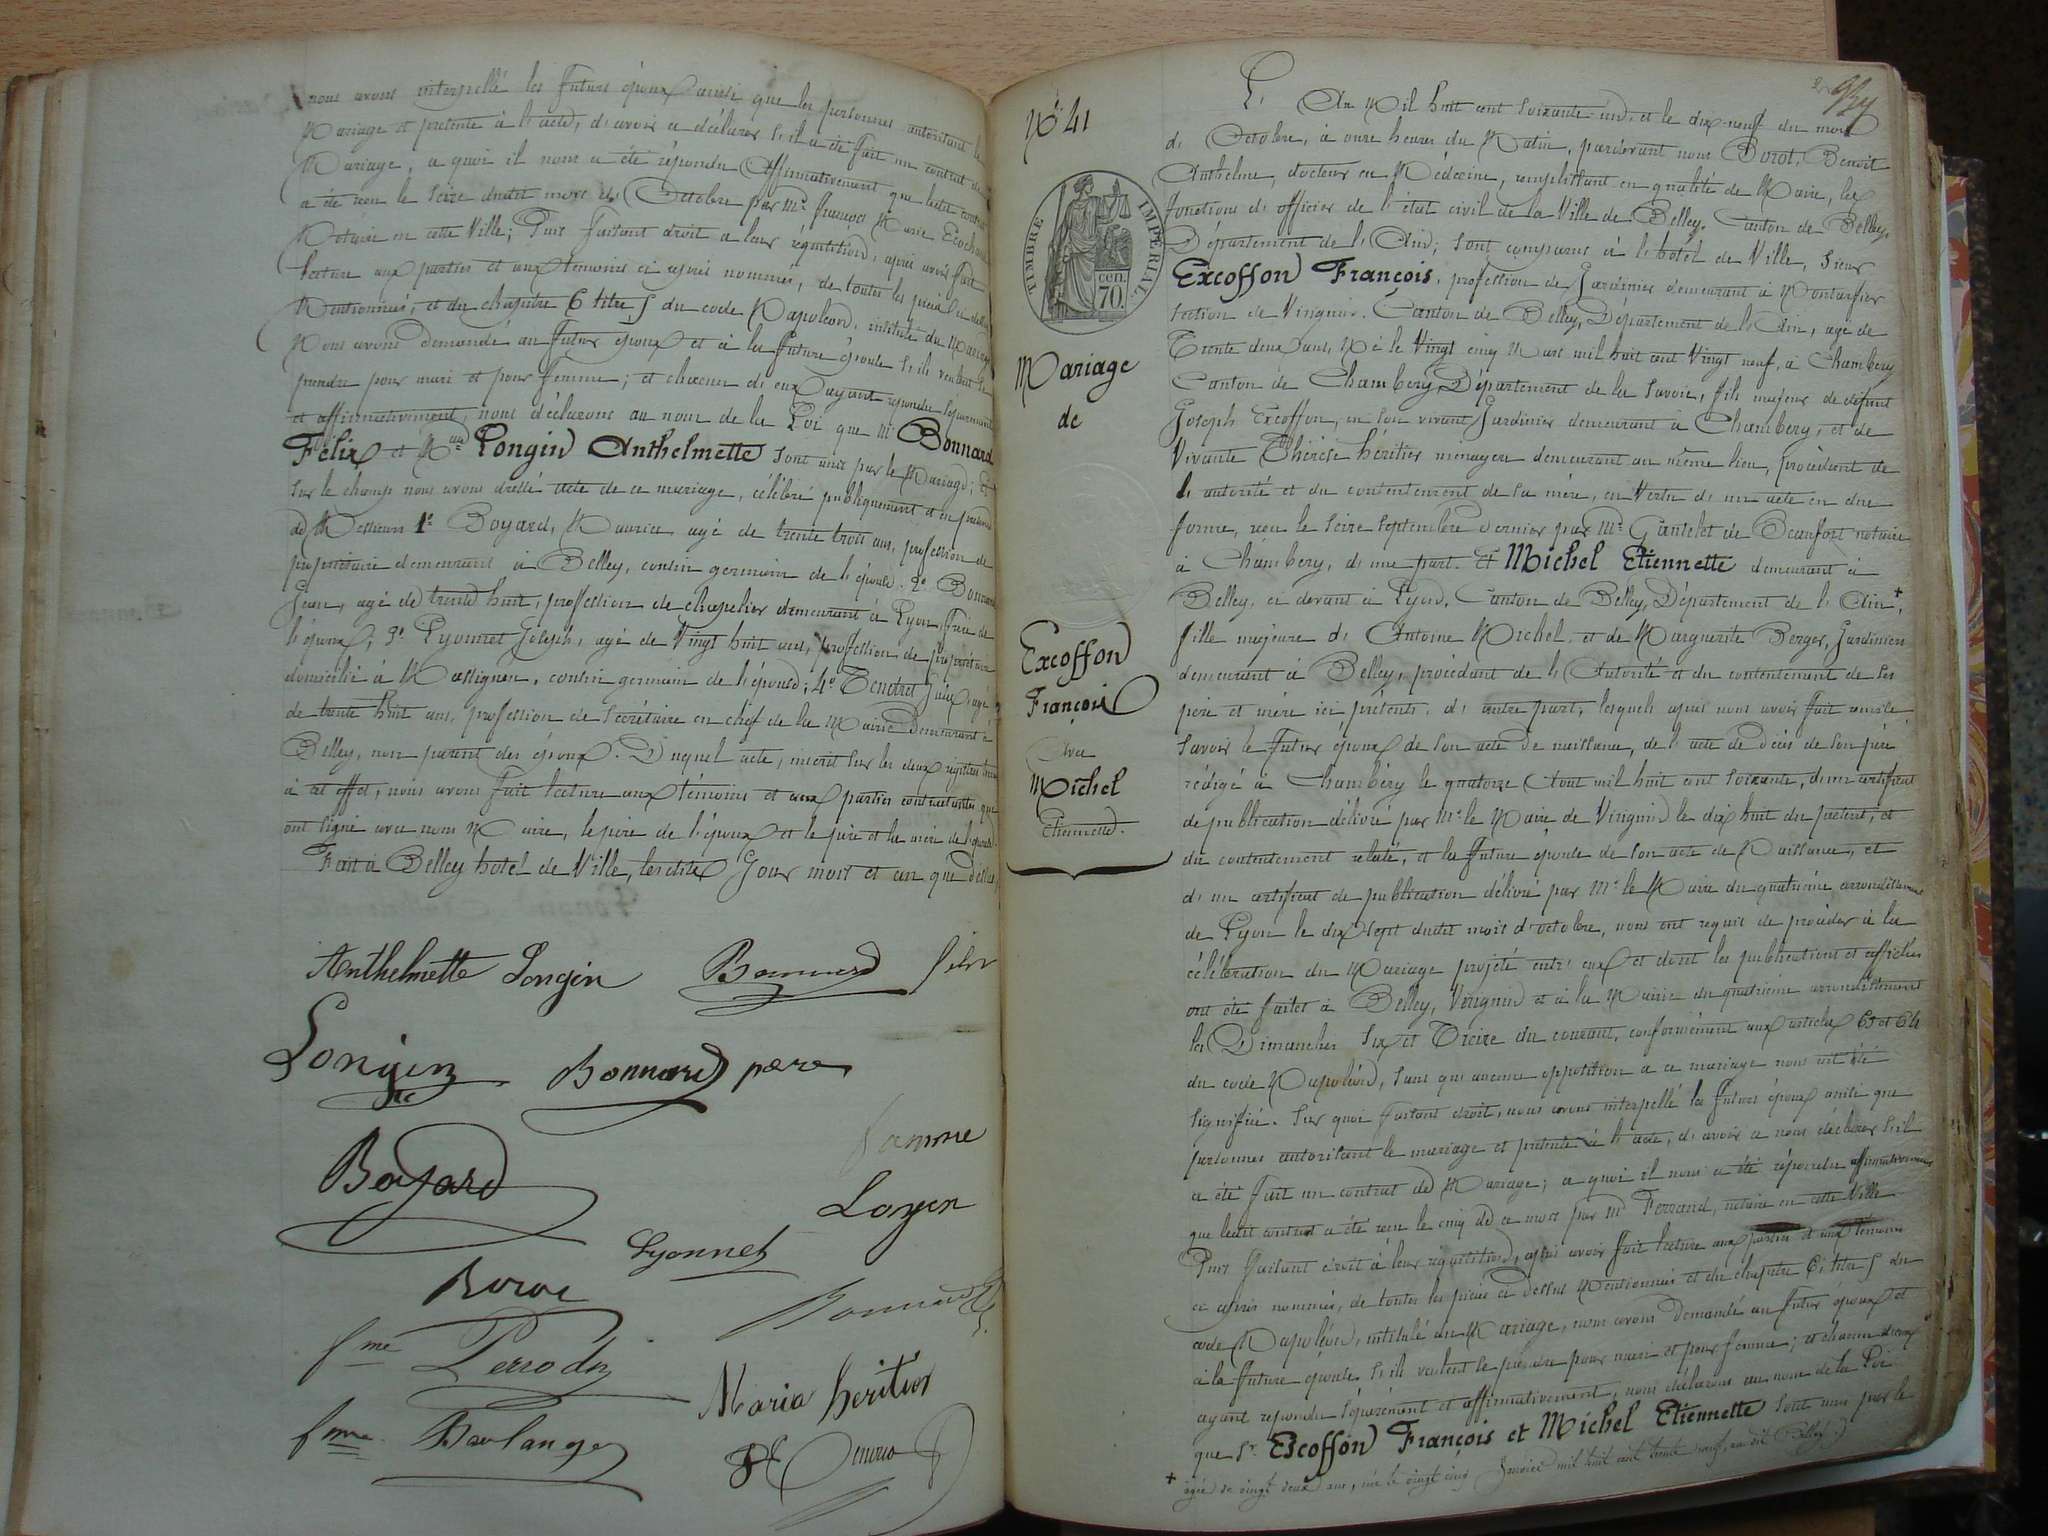 nous avons interpellé les futurs époux ainsi que les personnes autorisant le
Mariage et présente à l'acte, d'avoir a déclarer s'il a été fait un contrat de
Mariage, a quoi il nous a été répondu affirmativement que ledit contrat
a été reçu le seize dudit mois d'Octobre par Me François Marie
Notaire en cette Ville; Puis faisant droit a leur réquisition, après avoir fait
lecture aux parties et aux témoins ci après nommés, de toutes les pièces ci dessus
Mentionnées, et du chapitre 6 titre 5 du code Napoléon, intitulé du Mariage
Nous avons demandé au futur époux et à la future épouse s'ils veulent se
prendre pour mari et pour femme; et chacun d'eux ayant répondu séparément
et affirmativement, nous déclarons au nom de la Loi que Mr Bonnard
Félix et Mlle Longin Anthelmette sont unis par le Mariage; Et
sur le champ nous avons dressé acte de ce mariage, célébré publiquement et en présence
de Messieurs 1° Boyard, Maurice agé de trente trois ans, profession de
propriétaire demeurant à Belley, cousin germain de l'épouse. 2° Bonnard
Jean, agé de trente huit, profession de chapelier demeurant a Lyon, frère de
l'époux; 3° Lyonnet Joseph, agé de Vingt huit ans, profession de propriétaire
domicilié à Massignieu, cousin germain de l'épouse; 4° Tendret agé
de trente huit ans, profession de Secrétaire en chef de la Mairie demeurant à
Belley, non parent des époux. Duquel acte, inscrit sur les deux registres
à cet effet, nous avons fait lecture aux témoins et aux parties contractantes que
ont signé avec nous Maire, le père de l'époux et le père et la mère de l'épouse.
Fait à Belley hotel de Ville, lesdits Jour mois et an que dessus
Anthelmette Longin Bonnard félix
Longin Bonnard père
Boyard famme
Longin
Lyonnet
Borot Bonnard
fme Perrodin
Maria héritier
fme Boulanger
N° 41
TIMBRE IMPERIAL
70 cen.
Mariage
de
Excoffon
François
Avec
Michel
Etiennette.
L'An Mil huit cent soixante un, et le dix neuf du mois
d'Octobre, à onze heures du Matin, pardevant nous Borot, Benoit
Anthelme, docteur en Médecine, remplissant en qualité de Maire, les
fonctions d'officier de l'état civil de la Ville de Belley, Canton de Belley,
Département de l'Ain; sont comparus à l'hotel de Ville, Sieur
Excoffon François, profession de Jardinier demeurant à
section de Virignin, Canton de Belley, Département de l'Ain, agé de
Trente deux ans, Né le Vingt cinq Mars mil huit cent Vingt neuf, à Chambery
Canton de Chambery, Département de la Savoie, fils majeur de défunt
Joseph Excoffon, en son vivant Jardinier demeurant à Chambery, et de
Vivante Thérèse héritier ménagère demeurant au même lieu, procédant de
l'autorité et du contentement de sa mère, en Vertu d'un acte en due
forme, reçu le seize septembre dernier par Me Gantelet de Beaufort notaire
à Chambery, d'une part. Et Michel Etiennette demeurant à
Belley, ci devant à Lyon, Canton de Belley, Département de l'Ain +,
fille majeure d'Antoine Michel et de Marguerite Berger, Jardiniers
demeurant à Belley, procédant de l'Autorité et du contentement de ses
père et mère ici présents, d'autre part, lesquels après nous avoir fait remise,
Savoir le futur époux de son acte de naissance, de l'acte de décès de son père
rédigé à Chambéry le quatorze Aout mil huit cent soixante, d'un certificat
de publication délivré par Mr le Maire de Virignin le dix huit du présent, et
du contentement relaté, et la future épouse de son acte de Naissance, et
d'un certificat de publication délivré par Mr le Maire du quatrième arrondissement
de Lyon le dix sept dudit mois d'octobre, nous ont requis de procéder à la
célébration du Mariage projeté entre eux et dont les publications et affiches
ont été faites à Belley, Virignin et à la Mairie du quatrième arrondissement
les Dimanches Six et Treize du courant, conformément aux articles 63 et 64
du code Napoléon, sans que aucune opposition a ce mariage nous ait été
signifiée. Sur quoi faisant droit, nous avons interpellé les futurs époux ainsi que
personnes autorisant le mariage et présente à l'acte, d'avoir a nous déclarer s'il
a été fait un contrat de Mariage; a quoi il nous a été répondu affirmativement
que ledit contrat a été reçu le cinq de ce mois par Me Ferrand, notaire en cette Ville
Puis faisant droit à leur réquisition, après avoir fait lecture aux parties et aux témoins
ci après nommés, de toutes les pièces ci dessus Mentionnées et du chapitre 6, titre 5 du
code Napoléon, intitulé du Mariage, nous avons demandé au futur époux et
à la future épouse s'ils veulent se prendre pour mari et pour femme; et chacun d'eux
ayant répondu séparément et affirmativement, nous déclarons au nom de la Loi
que Sr Excoffon François et Michel Etiennette sont unis par le
+ agée de vingt deux ans, née le vingt cinq Janvier mil huit cent trente neuf, au dit Belley